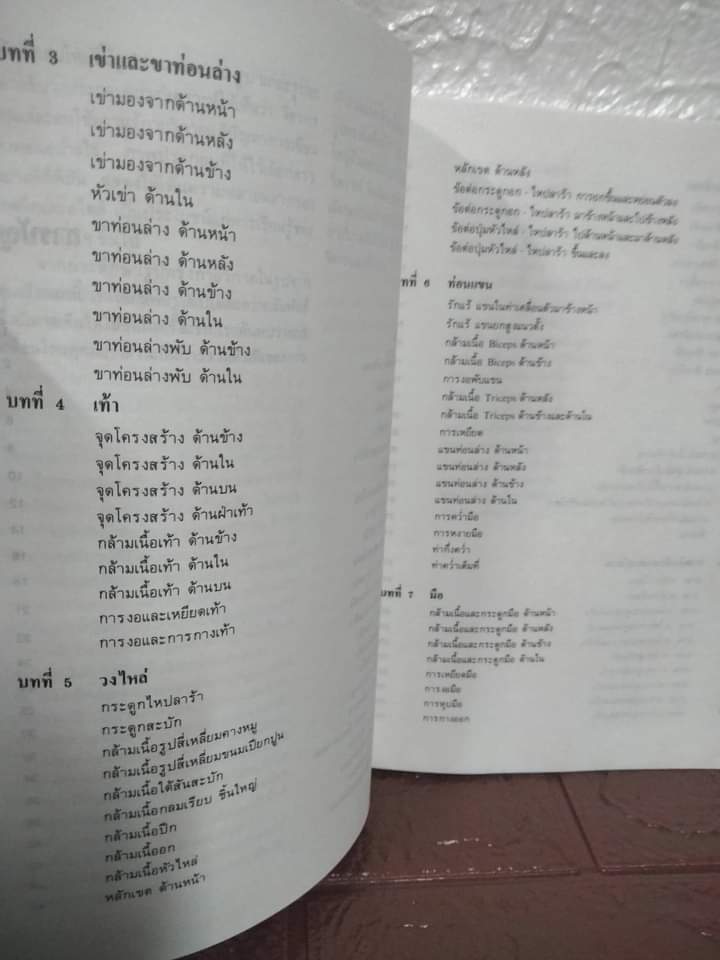 บทที่ 3 เข่าและขาท่อนล่าง
เข่ามองจากด้านหน้า
เข่ามองจากด้านหลัง
เข่ามองจากด้านข้าง
หัวเข่า ด้านใน
ขาท่อนล่าง ด้านหน้า
ขาท่อนล่าง ด้านหลัง
ขาท่อนล่าง ด้านข้าง
ขาท่อนล่าง ด้านใน
ขาท่อนล่างพับ ด้านข้าง
ขาท่อนล่างพับ ด้านใน
บทที่ 4 เท้า
จุดโครงสร้าง ด้านข้าง
จุดโครงสร้าง ด้านใน
จุดโครงสร้าง ด้านบน
จุดโครงสร้าง ด้านฝ่าเท้า
กล้ามเนื้อเท้า ด้านข้าง
กล้ามเนื้อเท้า ด้านใน
กล้ามเนื้อเท้า ด้านบน
การงอและเหยียดเท้า
การงอและการกางเท้า
บทที่ 5 วงไหล่
กระดูกไหปลาร้า
กระดูกสะบัก
กล้ามเนื้อรูปสี่เหลี่ยมคางหมู
กล้ามเนื้อรูปสี่เหลี่ยมขนมเปียกปูน
กล้ามเนื้อใต้สันสะบัก
กล้ามเนื้อกลมเรียบ ชิ้นใหญ่
กล้ามเนื้อปีก
กล้ามเนื้ออก
กล้ามเนื้อหัวไหล่
หลักเขต ด้านหน้า
หลักเขต ด้านหลัง
ข้อต่อกระดูกอก - ไหปลาร้า การยกขึ้นและหย่อนตัวลง
ข้อต่อกระดูกอก - ไหปลาร้า มาข้างหน้าและไปข้างหลัง
ข้อต่อปุ่มหัวไหล่ - ไหปลาร้า ไปด้านหน้าและมาด้านหลัง
ข้อต่อปุ่มหัวไหล่ - ไหปลาร้า ขึ้นและลง
ทที่ 6 ท่อนแขน
รักแร้ แขนในท่าเคลื่อนตัวมาข้างหน้า
รักแร้ แขนยกสูงแนวตั้ง
กล้ามเนื้อ Biceps ด้านหน้า
กล้ามเนื้อ Biceps ด้านข้าง
การงอพับแขน
กล้ามเนื้อ Triceps ด้านหลัง
กล้ามเนื้อ Triceps ด้านข้างและด้านใน
การเหยียด
แขนท่อนล่าง ด้านหน้า
แขนท่อนล่าง ด้านหลัง
แขนท่อนล่าง ด้านข้าง
แขนท่อนล่าง ด้านใน
การคว่ำมือ
การหงายมือ
ท่ากึ่งคว่ำ
ท่าคว่ำเต็มที่
บทที่ 7 มือ
กล้ามเนื้อและกระดูกมือ ด้านหน้า
กล้ามเนื้อและกระดูกมือ ด้านหลัง
กล้ามเนื้อและกระดูกมือ ด้านข้าง
กล้ามเนื้อและกระดูกมือ ด้านใน
การเหยียดมือ
การงอมือ
การหุบมือ
การกางออก